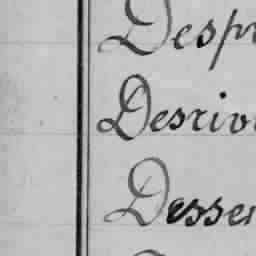 Despr
Desriv
Desser